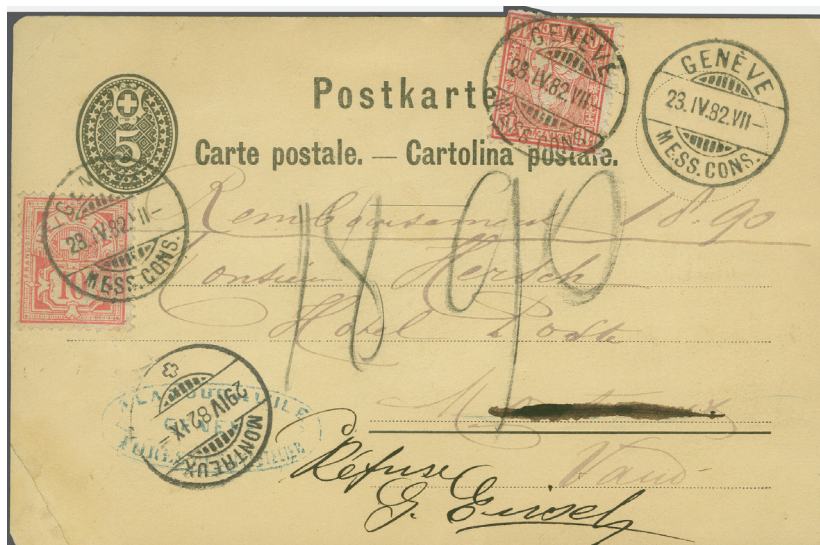 5
Postkarte
Carte postale. — Cartolina postale.
GENÈVE
23.IV.82.VII-
MESS.CONS.
GENÈVE
23.IV.82.VII-
MESS.CONS.
23.IV.82.VII-
MESS.CONS.
10
Remboursement 18.90
18 90
Monsieur Hersch
Hotel Poste
Vaud
29 IV 82 IX
MONTREUX
Réfusé